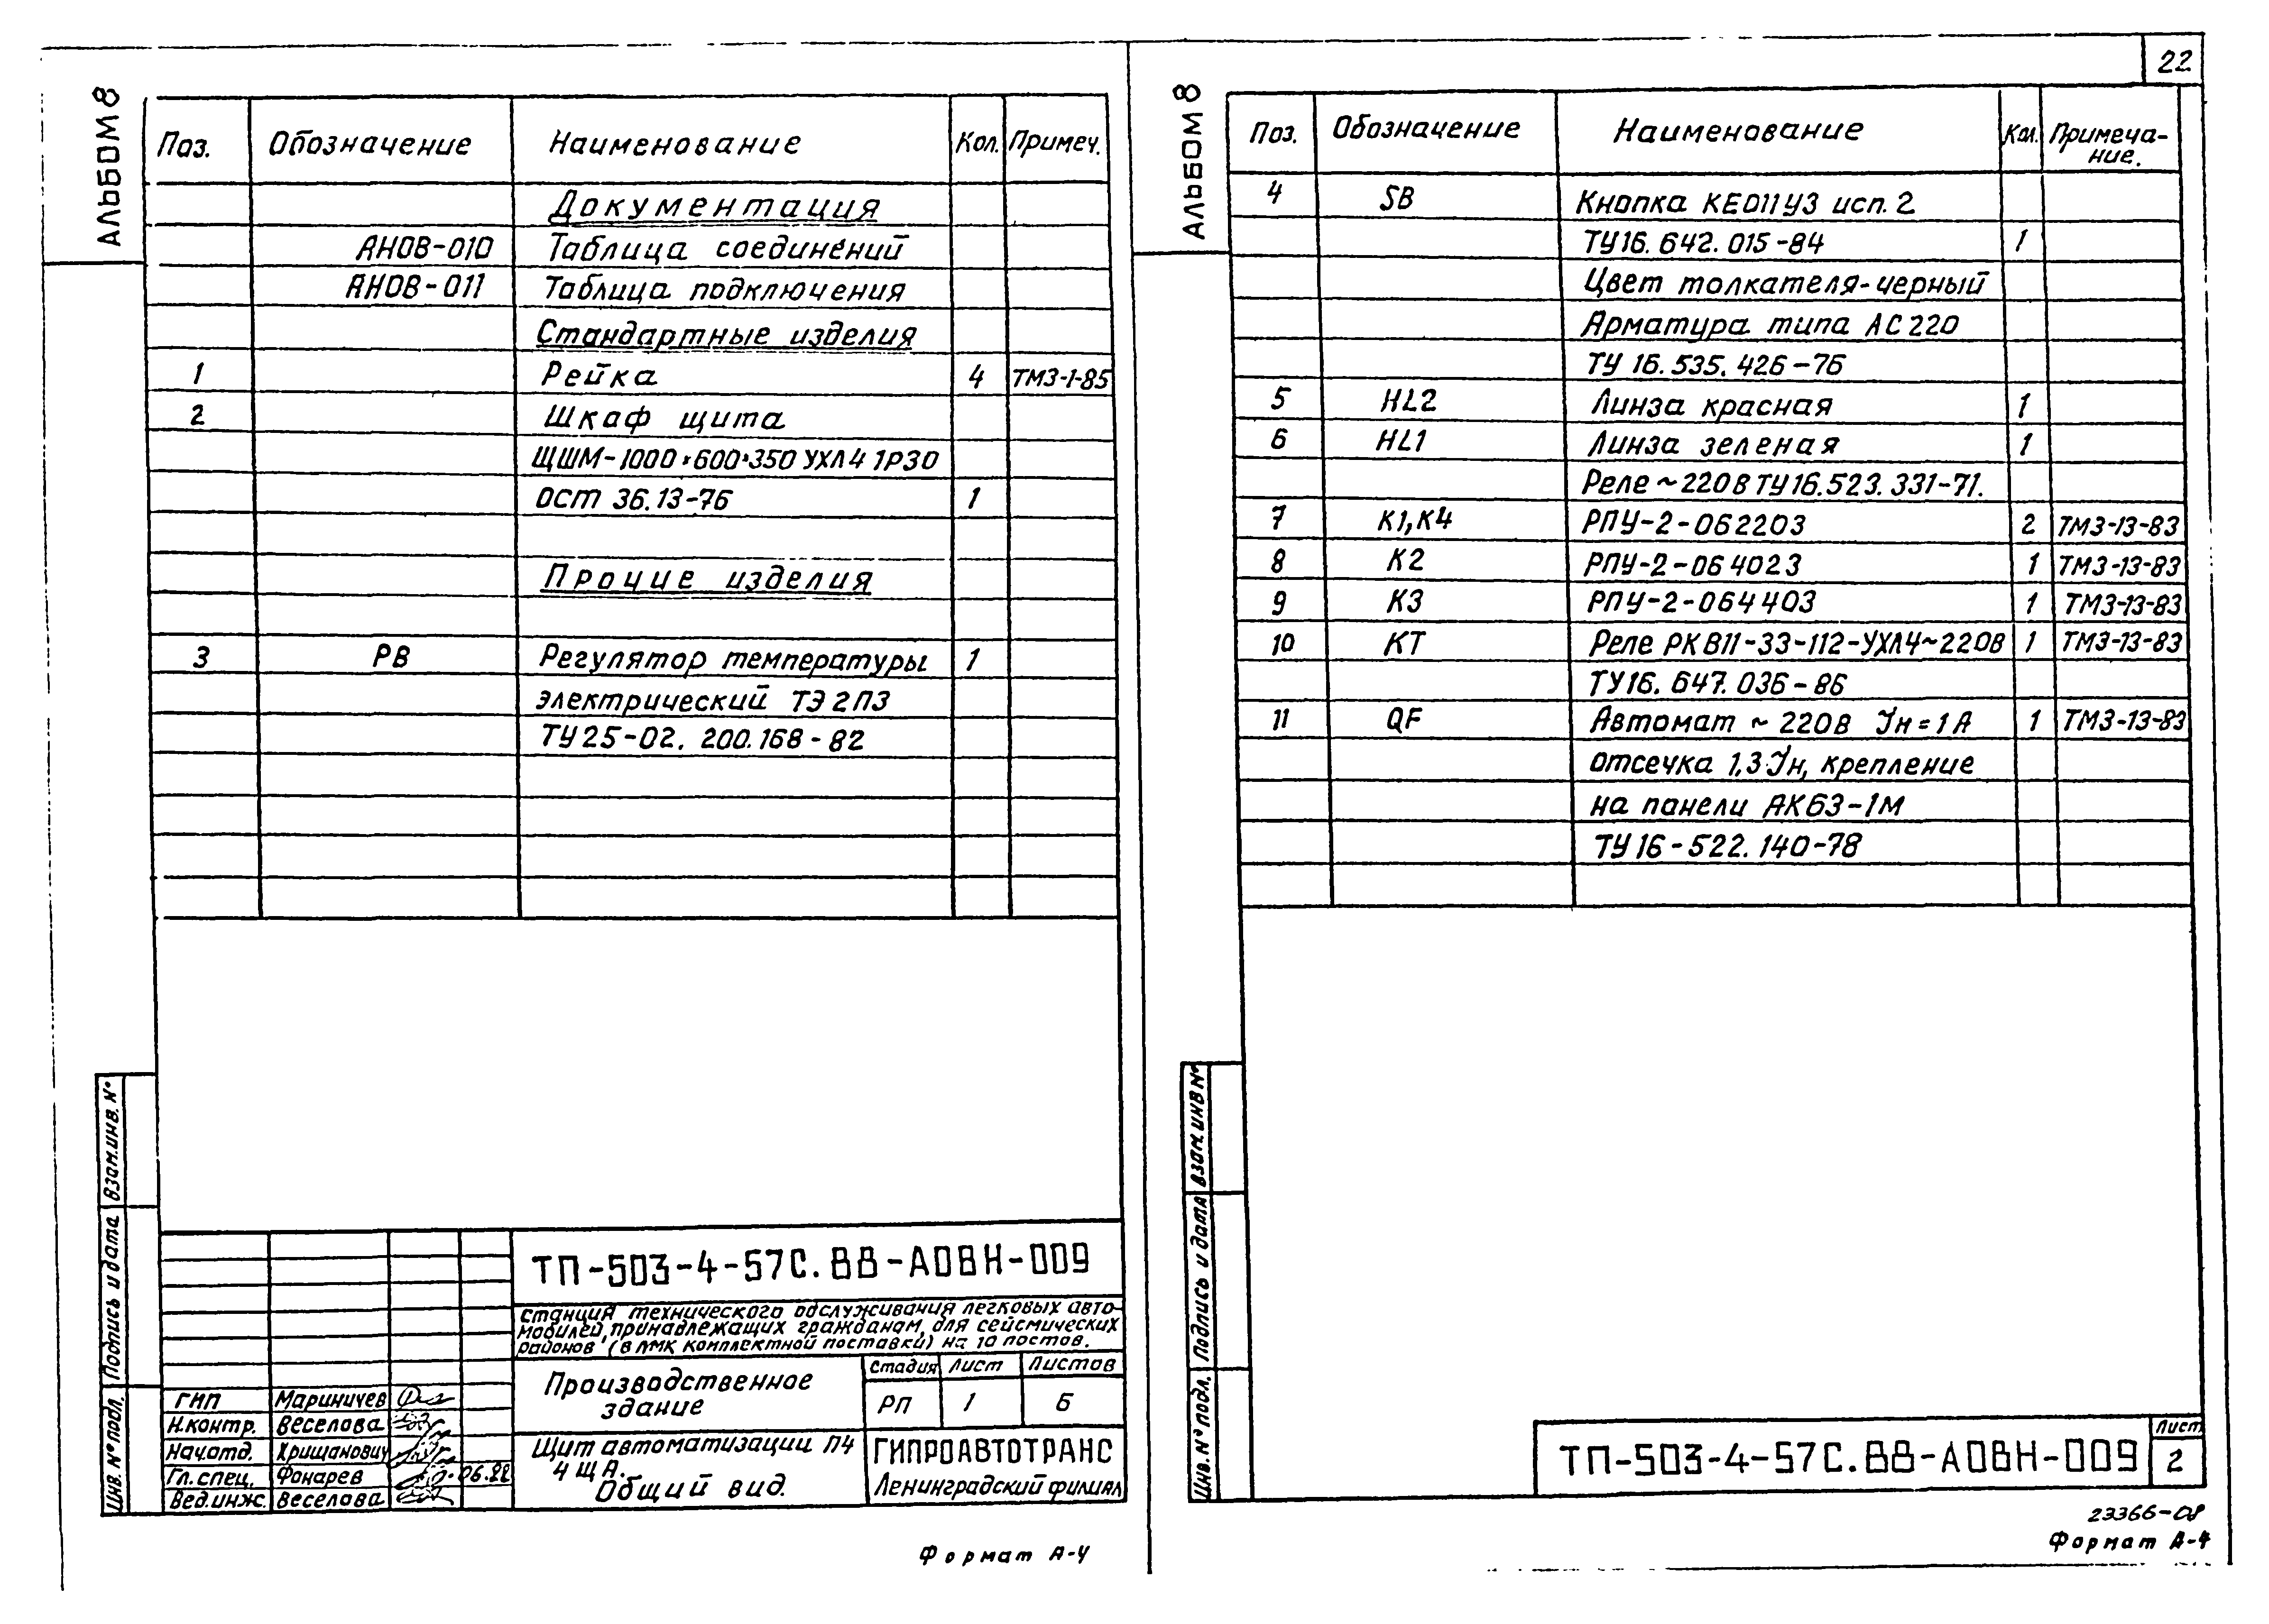 22
АЛЬБОМ 8
Поз. Обозначение Наименование Кол. Примеч.
Документация
АНОВ-010 Таблица соединений
АНОВ-011 Таблица подключения
Стандартные изделия
1 Рейка 4 ТМ3-1-85
2 Шкаф щита
ЩШМ-1000×600×350 УХЛ4 1Р30
ОСТ 36.13-76 1
Прочие изделия
3 РВ Регулятор температуры 1
электрический ТЭ2П3
ТУ25-02.200.168-82
Взам.инв.N°
Подпись и дата
Инв.N°подл.
ТП-503-4-57С.88-АОВН-009
Станция технического обслуживания легковых авто-
мобилей, принадлежащих гражданам, для сейсмических
районов (в ЛМК комплектной поставки) на 10 постов.
Производственное
здание
Стадия Лист Листов
РП 1 6
ГИП Мариничев
Н.контр. Веселова
Нач.отд. Хришанович
Гл.спец. Фонарев 06.88
Вед.инж. Веселова
Щит автоматизации П4
4ЩА.
Общий вид.
ГИПРОАВТОТРАНС
Ленинградский филиал
Формат А-4
АЛЬБОМ 8
Поз. Обозначение Наименование Кол. Примеча-
ние.
4 SB Кнопка КЕ011У3 исп.2
ТУ16.642.015-84 1
Цвет толкателя-черный
Арматура типа АС220
ТУ 16.535.426-76
5 HL2 Линза красная 1
6 HL1 Линза зеленая 1
Реле ~220В ТУ16.523.331-71.
7 К1,К4 РПУ-2-062203 2 ТМ3-13-83
8 К2 РПУ-2-064023 1 ТМ3-13-83
9 К3 РПУ-2-064403 1 ТМ3-13-83
10 КТ Реле РКВ11-33-112-УХЛ4~220В 1 ТМ3-13-83
ТУ16.647.036-86
11 QF Автомат ~220В Jн=1А 1 ТМ3-13-83
отсечка 1,3·Jн, крепление
на панели АК63-1М
ТУ16-522.140-78
Взам.инв N°
Подпись и дата
Инв.N°подл.
ТП-503-4-57С.88-АОВН-009
Лист
2
23366-08
Формат А-4